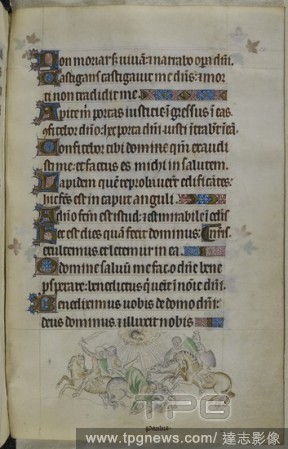 Non moriar s; uiuam: ⁊ narrabo opa dñi.
Castigans castigauit me dñs: ⁊ mor
ti non tradidit me.
Apite m portas iusticie: ingressus in eas
ꝯfitebor dño: hec porta dñi: iusti ītrabt ī eā.
Confitebor tibi domine qm̄ exaudi
sti me: et factus es michi in salutem.
Lapidem quē reprobauerūt edificātes:
hic fcs est in caput anguli.
A dño fcm est istud: ⁊ est mirabile ī oclis
Hec est dies quā fecit dominus: nris
exultemus et letemur in ea.
O domine saluū me fac o dñe bene
psperare: benedictus q̄ uēit ī noīe dñi.
Benediximus uobis de domo dñi:
deus dominus ⁊ illuxit nobis
Paulus.
TPG
www.tpgnews.com/ 達志影像